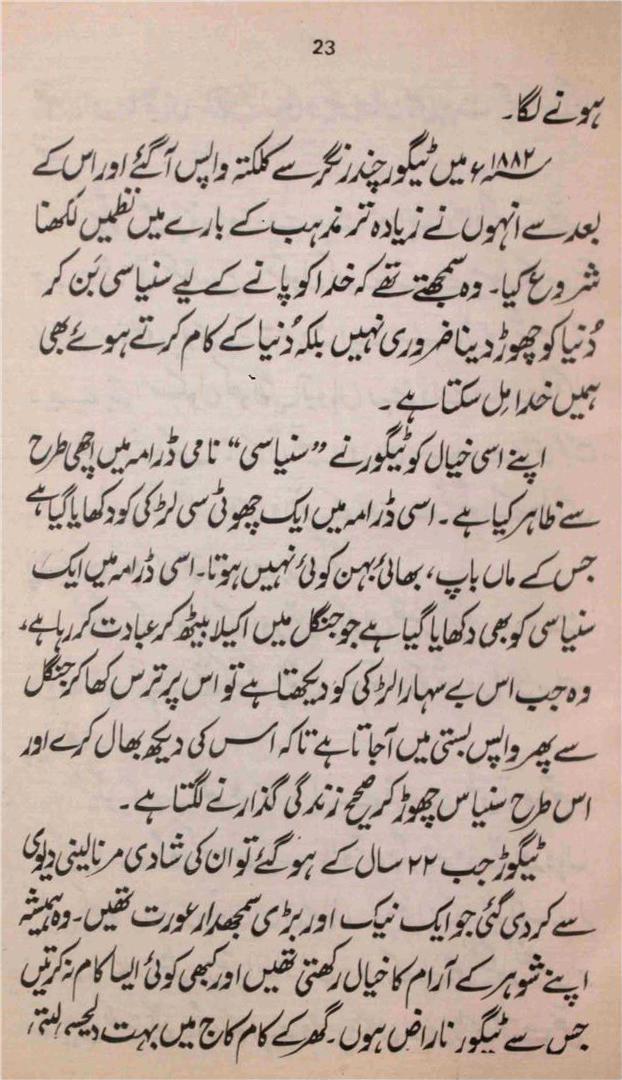 23
ہونے لگا۔
۱۸۸۲ء میں ٹیگور چندر نگر سے کلکتہ واپس آ گئے اور اس کے
بعد سے انہوں نے زیادہ تر مذہب کے بارے میں نظمیں لکھنا
شروع کیا۔ وہ سمجھتے تھے کہ خدا کو پانے کے لیے سنیاسی بَن کر
دُنیا کو چھوڑ دینا ضروری نہیں بلکہ دُنیا کے کام کرتے ہوئے بھی
ہمیں خدا مِل سکتا ہے۔
اپنے اسی خیال کو ٹیگور نے ”سنیاسی“ نامی ڈرامہ میں اچھی طرح
سے ظاہر کیا ہے۔ اسی ڈرامہ میں ایک چھوٹی سی لڑکی کو دکھایا گیا ہے
جس کے ماں باپ، بھائی بہن کوئی نہیں ہوتا۔ اسی ڈرامہ میں ایک
سنیاسی کو بھی دکھایا گیا ہے جو جنگل میں اکیلا بیٹھ کر عبادت کر رہا ہے،
وہ جب اس بے سہارا لڑکی کو دیکھتا ہے تو اس پر ترس کھا کر جنگل
سے پھر واپس بستی میں آجاتا ہے تاکہ اُس کی دیکھ بھال کرے اور
اس طرح سنیاس چھوڑ کر صحیح زندگی گذارنے لگتا ہے۔
ٹیگوڑ جب ۲۲ سال کے ہو گئے تو ان کی شادی مرنالینی دیوی
سے کر دی گئی جو ایک نیک اور بڑی سمجھدار عورت تھیں۔ وہ ہمیشہ
اپنے شوہر کے آرام کا خیال رکھتی تھیں اور کبھی کوئی ایسا کام نہ کرتیں
جس سے ٹیگور ناراض ہوں۔ گھر کے کام کاج میں بہت دلچسپی لیتی